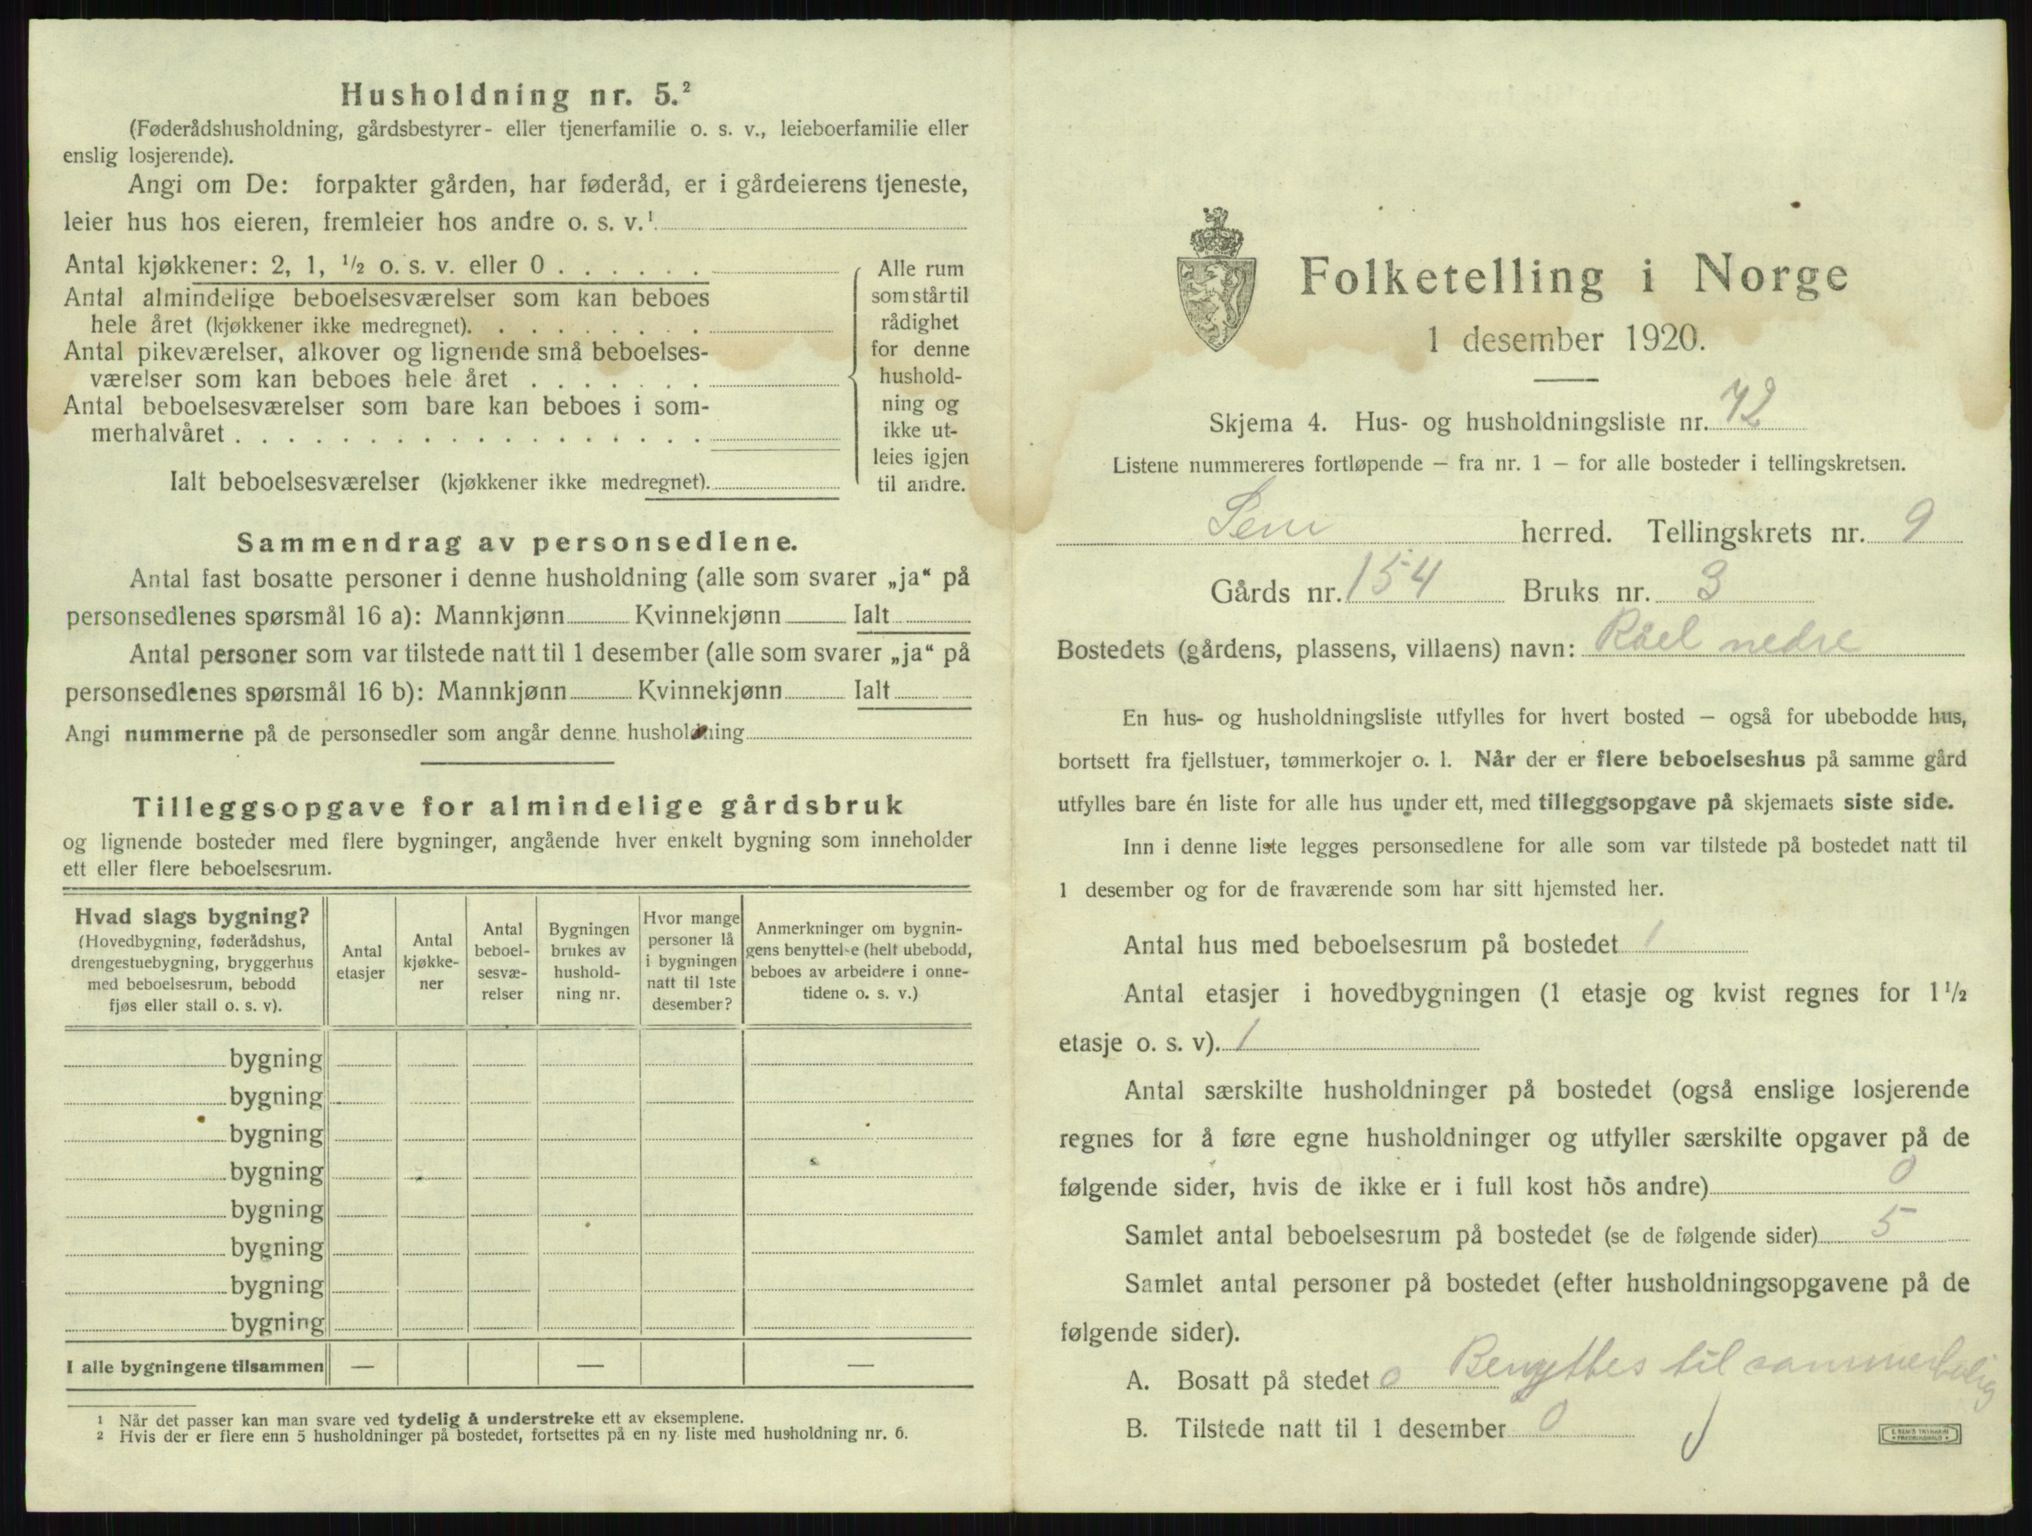 Husholdning nr. 5.²
(Føderådshusholdning, gårdsbestyrer- eller tjenerfamilie o. s. v., leieboerfamilie eller
enslig losjerende).
Angi om De: forpakter gården, har føderåd, er i gårdeierens tjeneste,
leier hus hos eieren, fremleier hos andre o. s. v.¹
Antal kjøkkener: 2, 1, ½ o. s. v. eller 0
Antal almindelige beboelsesværelser som kan beboes
hele året (kjøkkener ikke medregnet).
Antal pikeværelser, alkover og lignende små beboelses-
værelser som kan beboes hele året
Antal beboelsesværelser som bare kan beboes i som-
merhalvåret
Ialt beboelsesværelser (kjøkkener ikke medregnet).
Alle rum
som står til
rådighet
for denne
hushold-
ning og
ikke ut-
leies igjen
til andre.
Sammendrag av personsedlene.
Antal fast bosatte personer i denne husholdning (alle som svarer „ja“ på
personsedlenes spørsmål 16 a): Mannkjønn Kvinnekjønn Ialt
Antal personer som var tilstede natt til 1 desember (alle som svarer „ja“ på
personsedlenes spørsmål 16 b): Mannkjønn Kvinnekjønn Ialt
Angi nummerne på de personsedler som angår denne husholdning
Tilleggsopgave for almindelige gårdsbruk
og lignende bosteder med flere bygninger, angående hver enkelt bygning som inneholder
ett eller flere beboelsesrum.
Hvad slags bygning?
(Hovedbygning, føderådshus,
drengestuebygning, bryggerhus
med beboelsesrum, bebodd
fjøs eller stall o. s. v).
Antal
etasjer
Antal
kjøkke-
ner
Antal
beboel-
sesvæ-
relser
Bygningen
brukes av
hushold-
ning nr.
Hvor mange
personer lå
i bygningen
natt til 1ste
desember?
Anmerkninger om bygnin-
gens benyttelse (helt ubebodd,
beboes av arbeidere i onne-
tidene o. s. v.)
bygning
bygning
bygning
bygning
bygning
bygning
bygning
bygning
I alle bygningene tilsammen — — —
¹ Når det passer kan man svare ved tydelig å understreke ett av eksemplene.
² Hvis der er flere enn 5 husholdninger på bostedet, fortsettes på en ny liste med husholdning nr. 6.
Folketelling i Norge
1 desember 1920.
Skjema 4. Hus- og husholdningsliste nr. 42
Listene nummereres fortløpende – fra nr. 1 – for alle bosteder i tellingskretsen.
Sem herred. Tellingskrets nr. 9
Gårds nr. 154 Bruks nr. 3
Bostedets (gårdens, plassens, villaens) navn: Råel nedre
En hus- og husholdningsliste utfylles for hvert bosted – også for ubebodde hus,
bortsett fra fjellstuer, tømmerkojer o. l. Når der er flere beboelseshus på samme gård
utfylles bare én liste for alle hus under ett, med tilleggsopgave på skjemaets siste side.
Inn i denne liste legges personsedlene for alle som var tilstede på bostedet natt til
1 desember og for de fraværende som har sitt hjemsted her.
Antal hus med beboelsesrum på bostedet 1
Antal etasjer i hovedbygningen (1 etasje og kvist regnes for 1½
etasje o. s. v). 1
Antal særskilte husholdninger på bostedet (også enslige losjerende
regnes for å føre egne husholdninger og utfyller særskilte opgaver på de
følgende sider, hvis de ikke er i full kost hos andre) 0
Samlet antal beboelsesrum på bostedet (se de følgende sider) 5
Samlet antal personer på bostedet (efter husholdningsopgavene på de
følgende sider).
A. Bosatt på stedet 0 Benyttes til sommerbolig
B. Tilstede natt til 1 desember 0